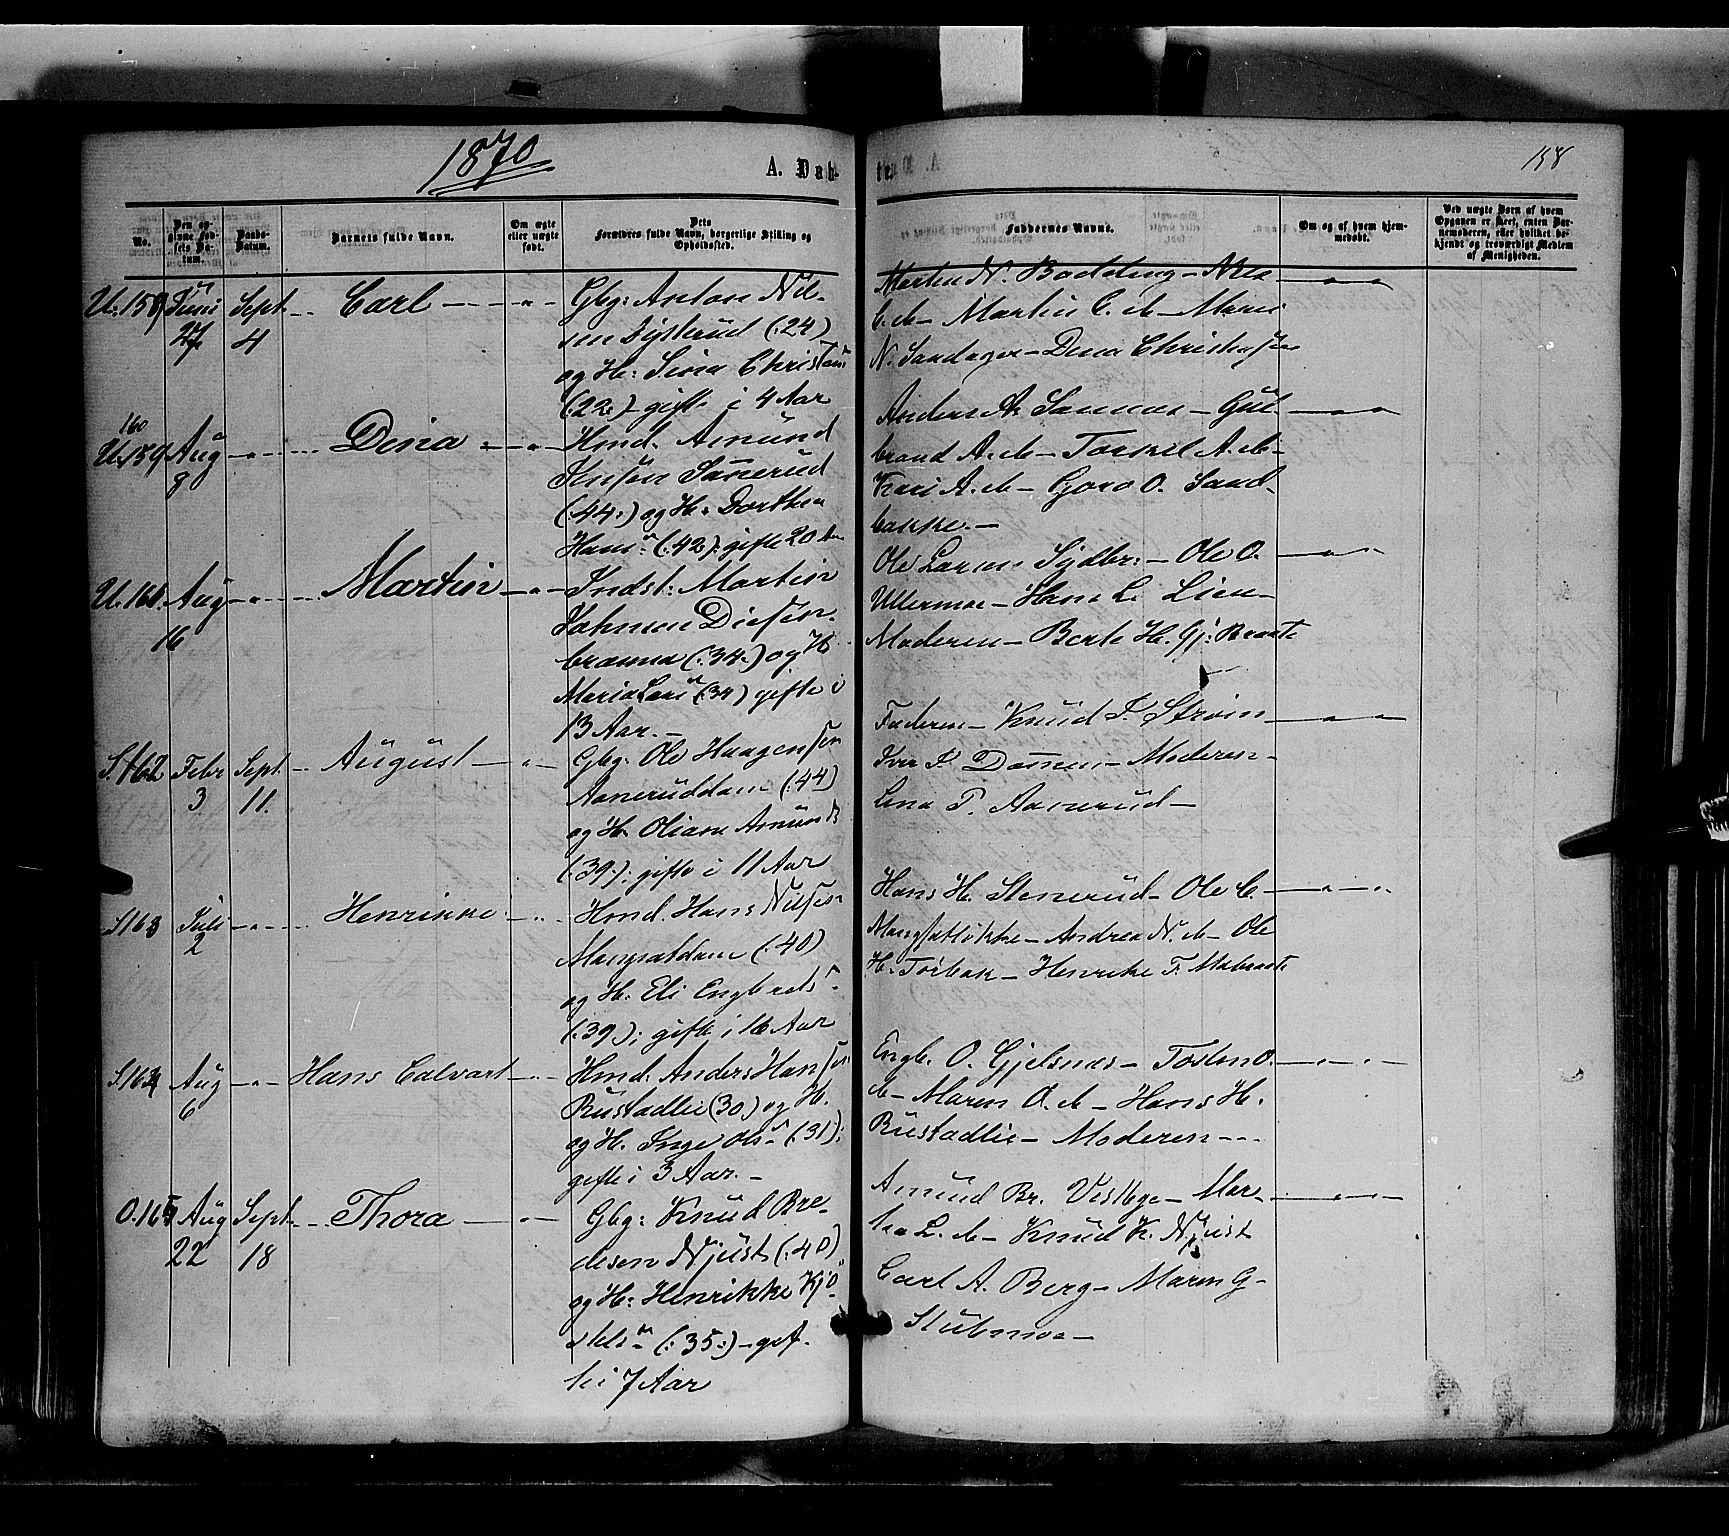 1870
A. Døb-
te.
158
No.
Den opgivne Fødsels Datum.
Daabs-Datum.
Barnets fulde Navn.
Om ægte eller uægte født.
Dets Forældres fulde Navn, borgerlige Stilling og Opholdssted.
Faddernes Navne.
Om og af hvem hjemmedøbt.
Ved uægte Børn af hvem Opgaven er skeet, enten Barnemoderen, eller hvilket bekjendt og troværdigt Medlem af Menigheden.
U. 159 Juni 27 Sept. 4 Carl
Gbg: Anton Nil-
sen
(:24)
og H: Sina Christians
(:22:) gifte i 4 Aar
Marten N.
Martin C. d
N. Sandager - Dina Christians
160 U. Aug 8 Dina
Hmd. Amund
Jensen Sannerud
(:44:) og H: Dorthea
Hans (:42:) gifte 20 Aar
Anders A. Sannes - Gul-
brand A. d - Torkel A. d
Kari A. d - Goro O. Sand-
bakke.
U. 161 Aug 16 Martin
Indst: Martin
Johnsen
(:34:) og H
Maria Lars (:34) gifte i
13 Aar.
Ole Larsen Sydbr: - Ole O.
Ullermoe - Hans L. Lien
Moderen - Berte H.
S. 162 Febr 3 Sept. 11. August
Gbg: Ole Haagensen
Aaneruddam (:44)
og H. Oliane Amunds
(:39:) gifte i 11 Aar
Faderen - Knud P. Strøm
Iver P. - Moderen -
Lina P. Aanerud -
S 163 Juli 2 Henrikke
Hmd. Hans Nilsen
(:40)
og H: Eli Engbrets
(:39); gifte i 16 Aar
Hans H. Stenerud - Ole C.
Andrea N. d - Ole
H. - Henrikke T.
S. 164 Aug 6 Hans Calvart
Hmd. Anders Hansen
Rustadlie (30) og H.
og H. Inge Ols (:31);
gifte i 3 Aar. -
Engb. O. Gjelsnes - Tosten O.
d - Maren O. d - Hans H.
Rustadlie - Moderen
O. 165 Aug 22 Sept 18 Thora
Gbg: Knud Bre-
desen Njust (:40)
og H: Henrikke Kjø-
stels (:35:) - gif-
te i 7 Aar
Amund Br. Vestbye - Mar-
L. d - Knud K. Njust
Carl A. Berg - Maren G
Stubmoe -